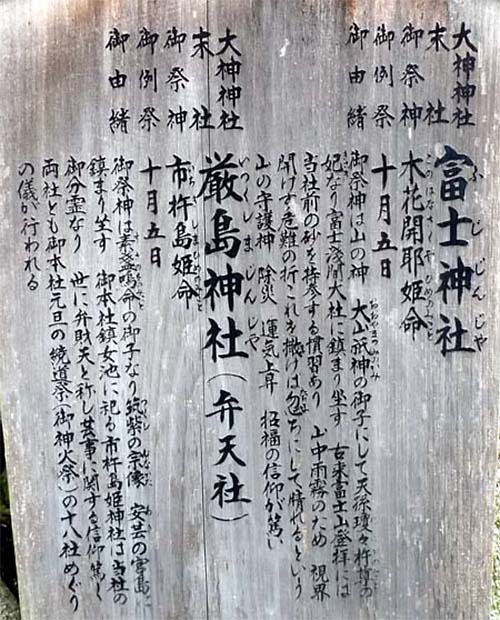 大神神社
末社 富士神社
ふじじんじゃ
御祭神 木花開耶姫命
このはなさくやひめのみこと
御例祭 十月五日
御由緒
御祭神は山の神 大山祇神の御子にして天孫瓊々杵尊の
おおやまつみのかみ
妃なり富士浅間大社に鎮まり坐す 古来富士山登拝には
当社前の砂を持参する慣習あり 山中雨霧のため 視界
開けず危難の折これを撒けば忽ちにして晴れるという
山の守護神 除災 運気上昇 招福の信仰が篤し
大神神社
末社 厳島神社（弁天社）
いつくしまじんじゃ
御祭神 市杵島姫命
いちきしまひめのみこと
御例祭 十月五日
御由緒
御祭神は素盞嗚命の御子なり筑紫の宗像 安芸の宮島に
鎮まり坐す 御本社鎮女池に祀る市杵島姫神社は当社の
御分霊なり 世に弁財天と称し芸事に関する信仰篤し
両社とも御本社元旦の繞道祭（御神火祭）の十八社めぐり
の儀が行われる